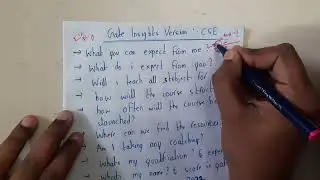 Gate Insights Version : CSE
→ What you can expect from me
→ What do i expect from you?
→ Will i teach all subjects for
→ how will the course struct
→ how often will the course be
launched?
Where can we find the resources
→ Am i taking any coaching?
→ Whats my qualification &
→ Whats my name? & score in gate